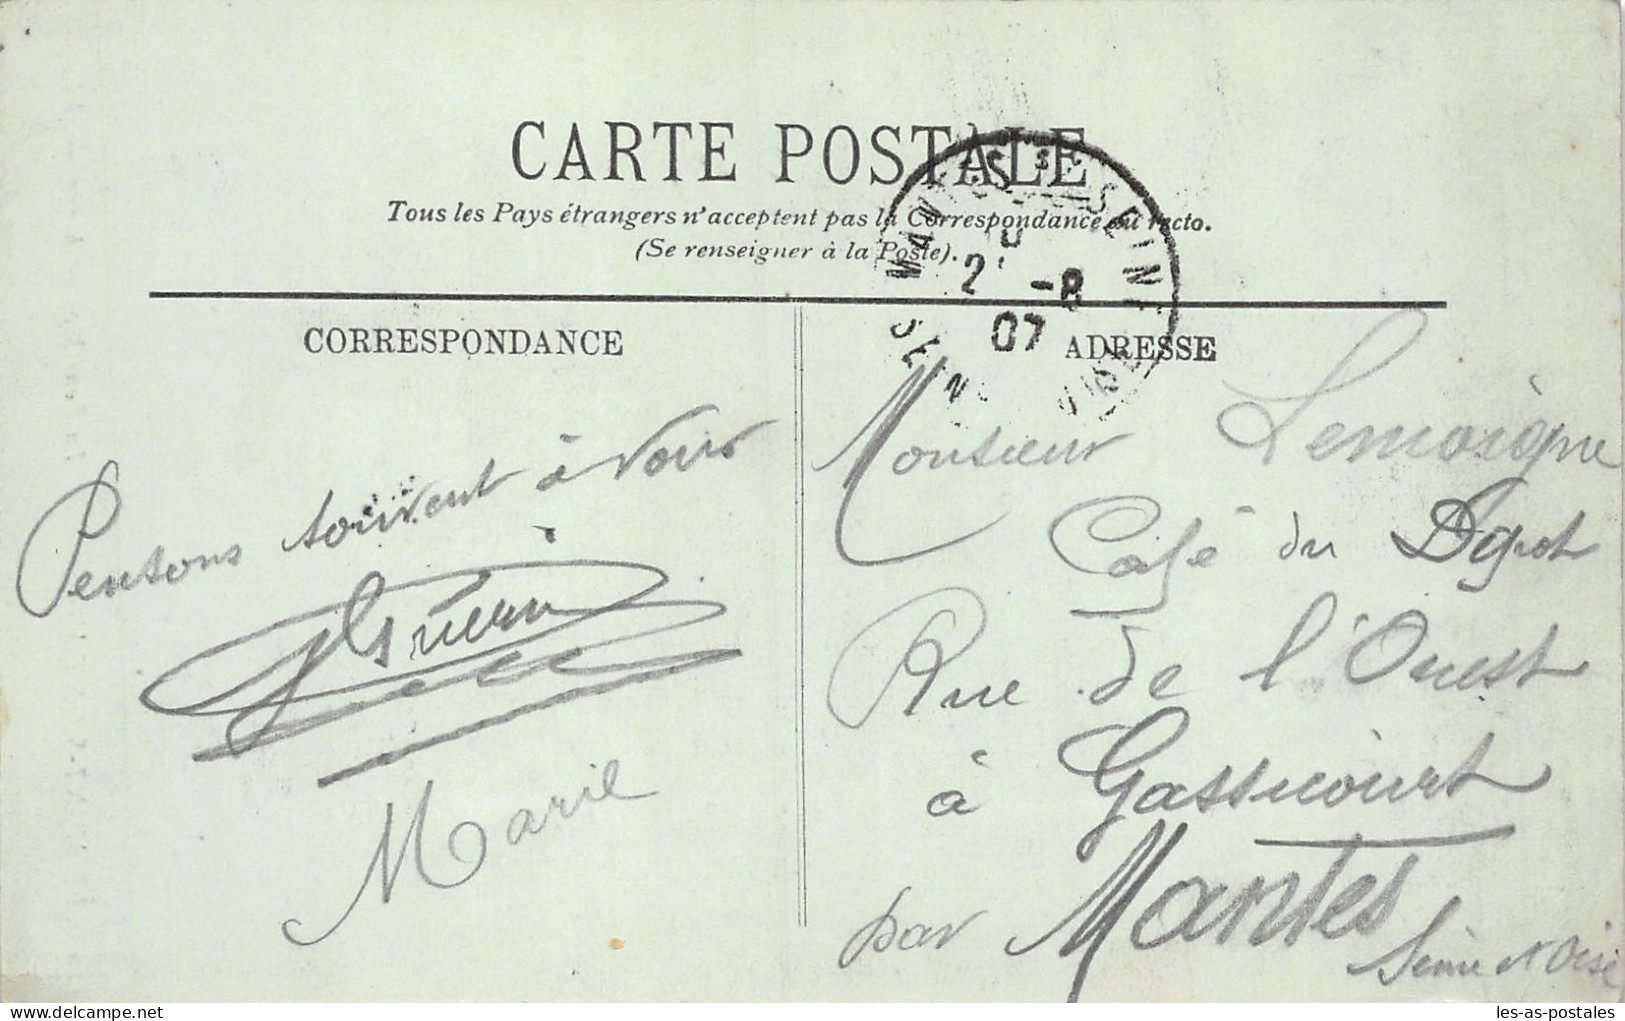 CARTE POSTALE
Tous les Pays étrangers n'acceptent pas la Correspondance au recto.
(Se renseigner à la Poste).
MANTES S SEINE
2 -8
07
CORRESPONDANCE
Pensons souvent à vous
Marie
ADRESSE
Monsieur Lemoigne
Café du Dépot
Rue de l'Ouest
à Gassicourt
par Mantes
Seine et Oise
delcampe.net
les-as-postales